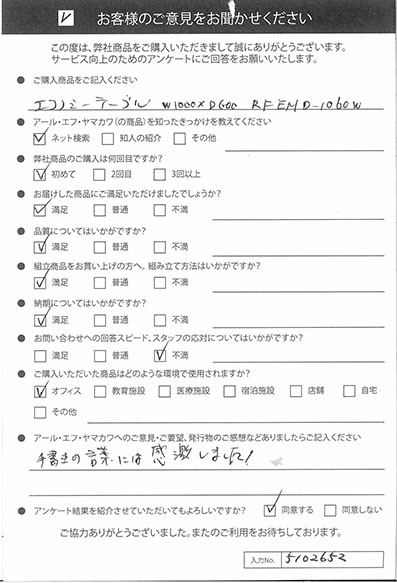 お客様のご意見をお聞かせください
この度は、弊社商品をご購入いただきまして誠にありがとうございます。
サービス向上のためのアンケートにご回答をお願いいたします。
● ご購入商品をご記入ください
エコノミーテーブル W1000×D600 RFEMD-1060W
● アール・エフ・ヤマカワ(の商品)を知ったきっかけを教えてください
☑ ネット検索 □ 知人の紹介 □ その他
● 弊社商品のご購入は何回目ですか?
☑ 初めて □ 2回目 □ 3回以上
● お届けした商品にご満足いただけましたでしょうか?
☑ 満足 □ 普通 □ 不満
● 品質についてはいかがですか?
☑ 満足 □ 普通 □ 不満
● 組立商品をお買い上げの方へ。組み立て方法はいかがですか?
☑ 満足 □ 普通 □ 不満
● 納期についてはいかがですか?
☑ 満足 □ 普通 □ 不満
● お問い合わせへの回答スピード、スタッフの応対についてはいかがですか?
□ 満足 □ 普通 ☑ 不満
● ご購入いただいた商品はどのような環境で使用されますか?
☑ オフィス □ 教育施設 □ 医療施設 □ 宿泊施設 □ 店舗 □ 自宅
□ その他
● アール・エフ・ヤマカワへのご意見・ご要望、発行物のご感想などありましたらご記入ください
手書きの言葉には感激しました!
● アンケート結果を紹介させていただいてもよろしいですか? ☑ 同意する □ 同意しない
ご協力ありがとうございました。またのご利用をお待ちしております。
入力No. 5102652